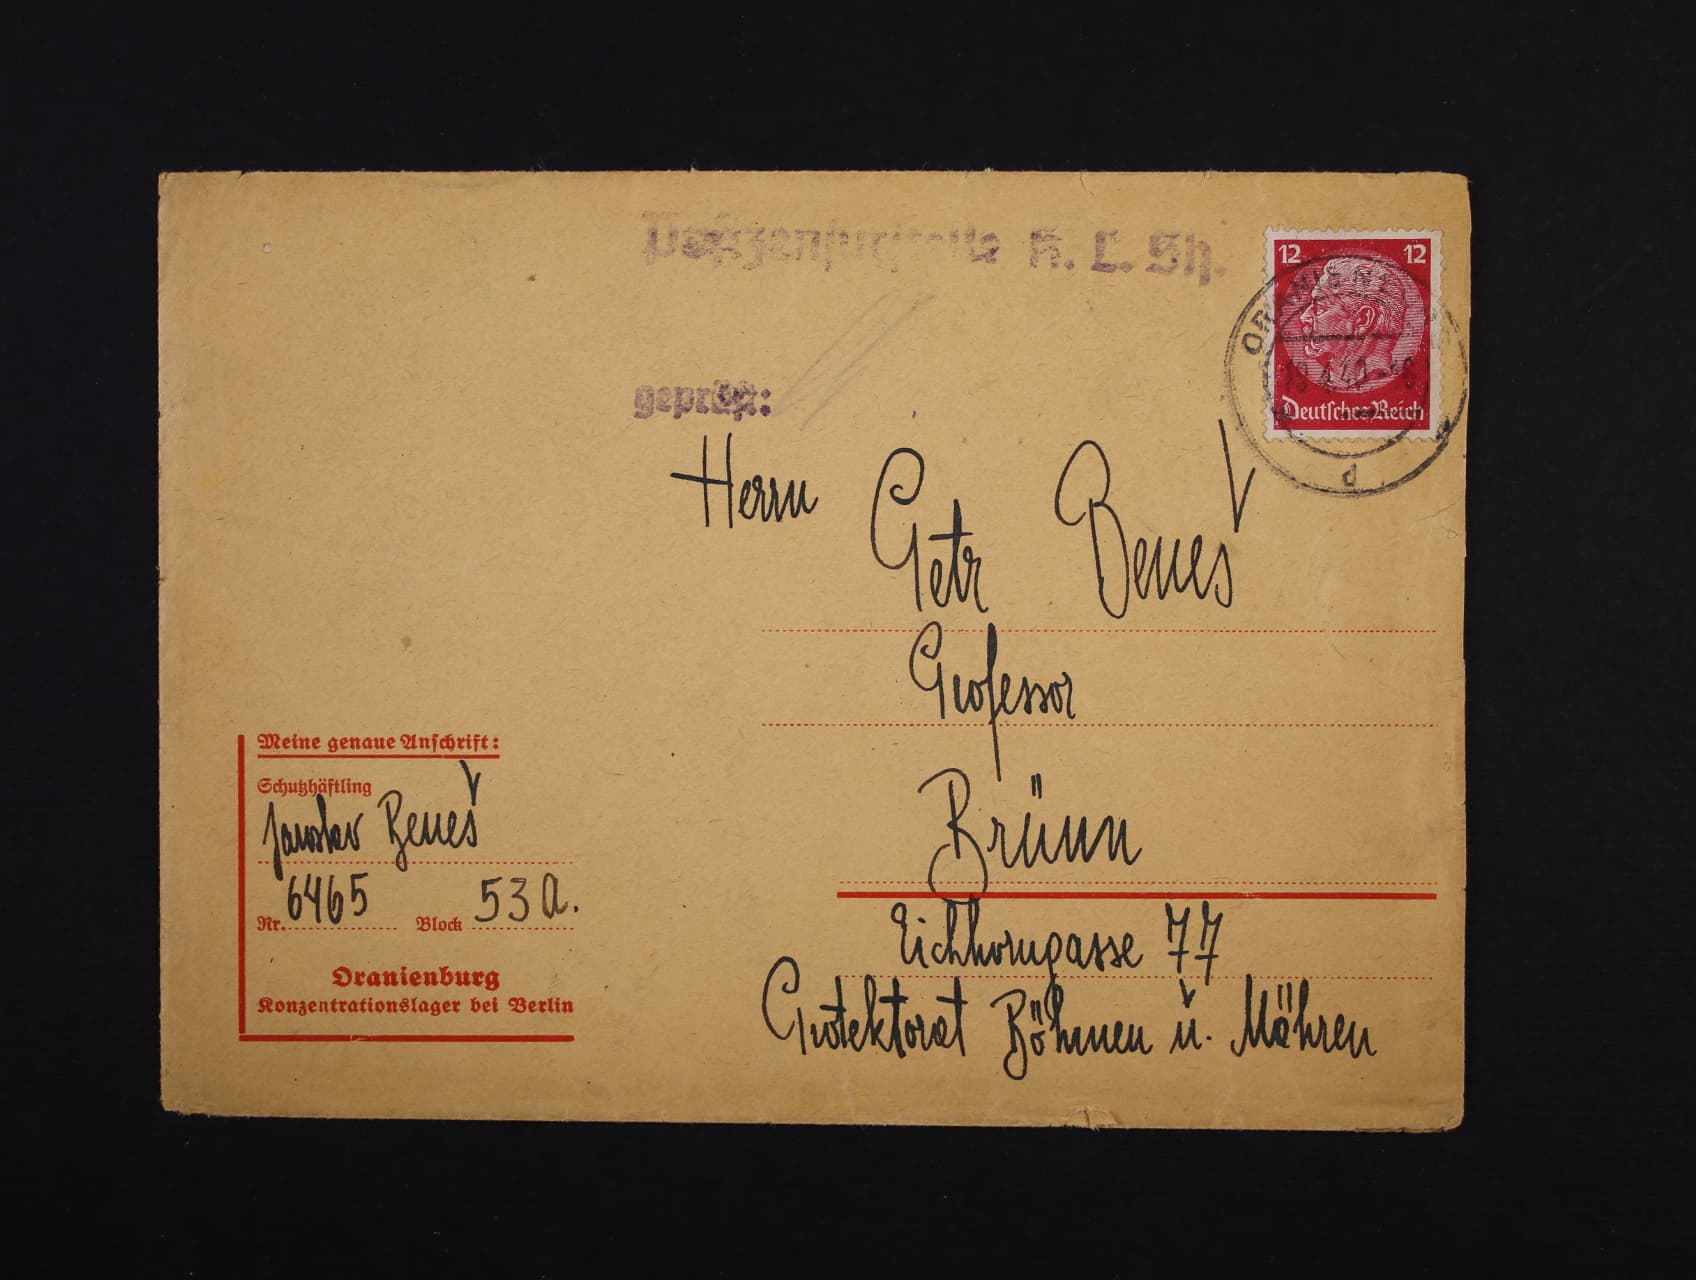 Postzensurstelle K. L. Sh.
geprüft:
12 12
Deutsches Reich
Herrn
Petr Beneš
Professor
Brünn
Eichhorngasse 77
Protektorat Böhmen u. Mähren
Meine genaue Anschrift:
Schutzhäftling
Jaroslav Beneš
Nr. 6465 Block 53 a.
Oranienburg
Konzentrationslager bei Berlin